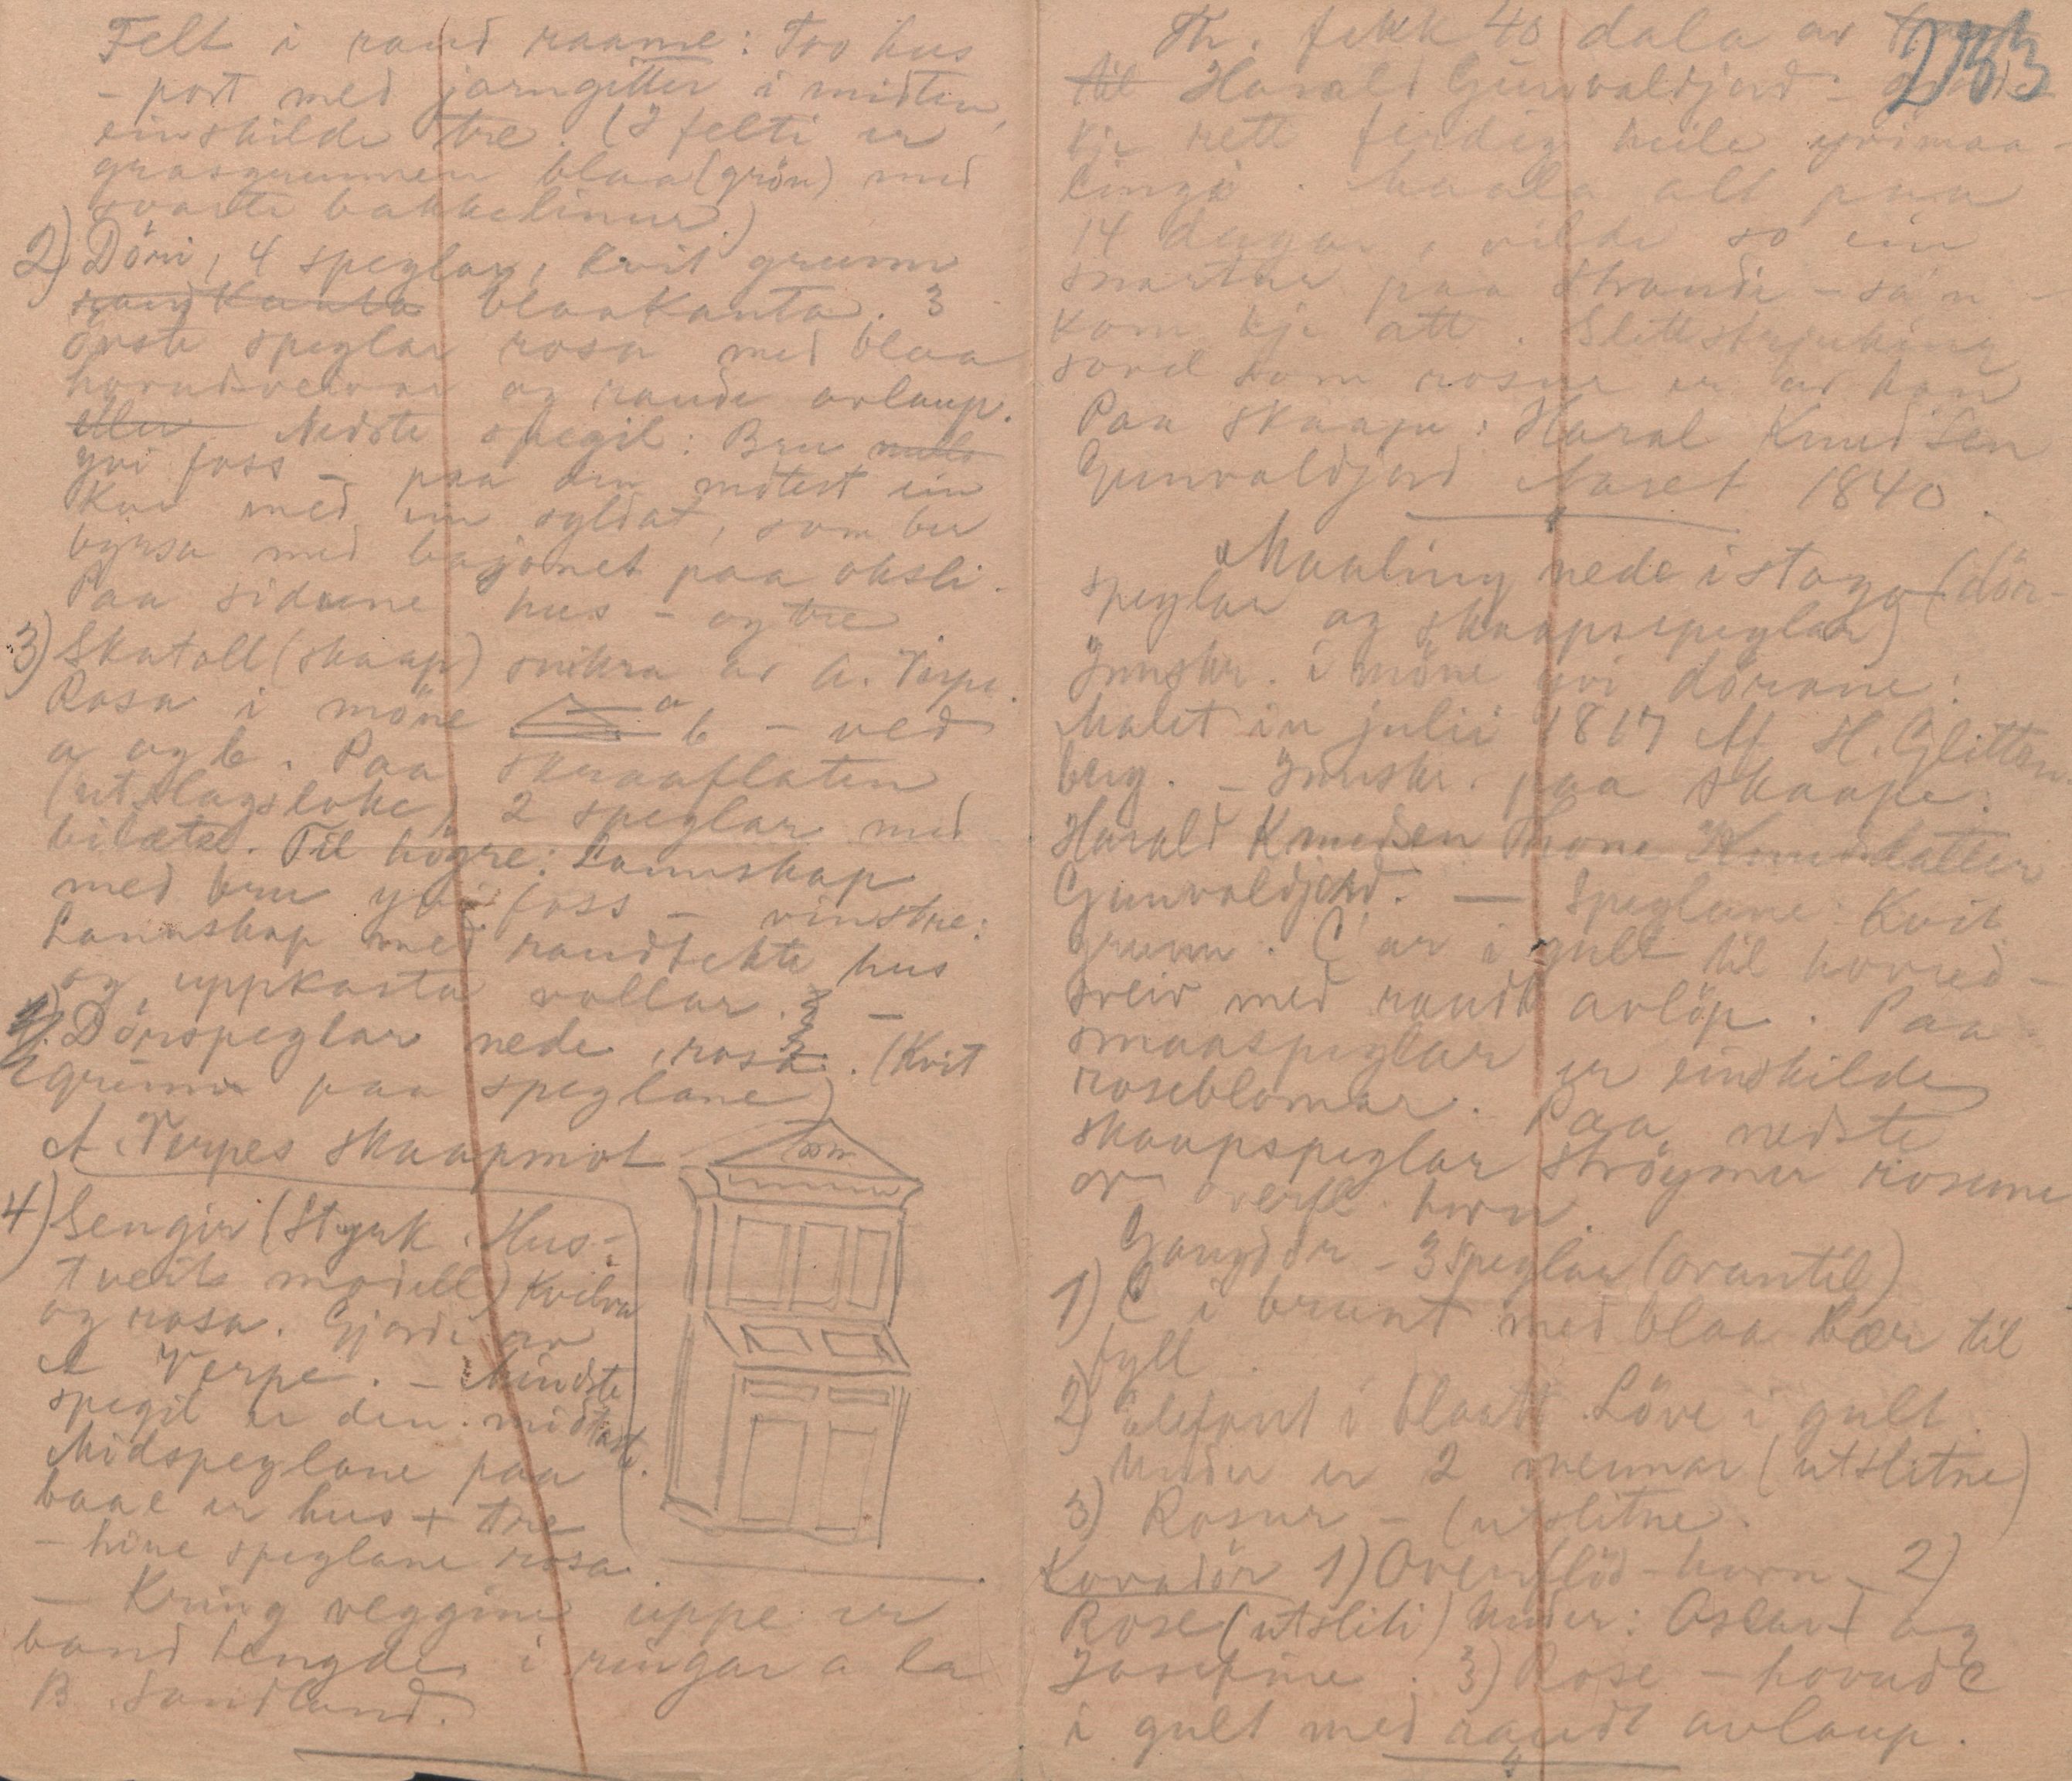 Felt i raud raame: Too hus
- port med jarngitter i midten,
einskilde tre. (I felti er
grasgrunnen blaa (grön) med
svarte bakkelinur.)
2) Döri, 4 speglar, kvit grunn
blaakanta. 3
övste speglar rosa med blaa
og raude avlaup.
Nedste spegil: Bru
yvi foss - paa den midtert ein
Kar med en syldat, som ber
byrsa med bajonet paa oksli.
Paa sidune hus - og tre
3) Skatoll (skaap) snikra av A. Verpe.
Rosa i möne a b - ved
a og b. Paa skraaflaten
(utslagsloke) 2 speglar med
bilæte. Til högre: Lannskap
med bru yvi foss - vinstre:
Lannskap med raudtekte hus
og uppkasta vollar. -
Dörspeglar nede, rosa. (Kvit
grunn paa speglane)
A. Verpes skaapmot
4) Sengir (Styrk. Hus-
tveits modell) Kvilva
og rosa. Gjordi av
A Verpe. - Mindste
spegil er den midtast.
Midspeglane paa
baae er hus + tre
- hine speglane rosa.
- Kring veggine uppe er
band lengde i ringar a la
B. Sandland.
233
Th. fekk 40 dala av
til Harald Gunvaldjord -
kje rett ferdig heile yvimaa-
lingi. Maala alt paa
14 dagar, vilde so ein
snartur paa Strandi - sa'n -
kom kje att. Slettstrjuking
sovel som rosur er av han
Paa skaape: Haral Knudsen
Gunvaldjord Aaret 1840.
Maaling nede i stoga (dör-
speglar og skaapspeglar)
Innskr. i möne yvi dörane:
Malet in julii 1817 Af H. Glitten
berg. - Innskr. paa skaape:
Harald Knudsen Thone Knudsdatter
Gunvaldjord. - Speglane: Kvit
grunn. C ar i gult til hovud-
sveiv med raudt avlöp. Paa
smaaspeglar er einskilde
roseblomar. Paa nedste
skaapspeglar ströymer rosune
or overfl. horn.
Gangdör - 3 speglar (ovantil)
1) C i brunt med blaa bær til
fyll.
2) Elefant i blaatt. Löve i gult.
Under er 2 mennar (utslitne)
3) Rosur - (utslitne.
Kovadör 1) Overflöd-horn - 2)
Rose (utsliti) Under: Oscar I og
Josefine. 3) Rose - hovud C
i gult med raudt avlaup.